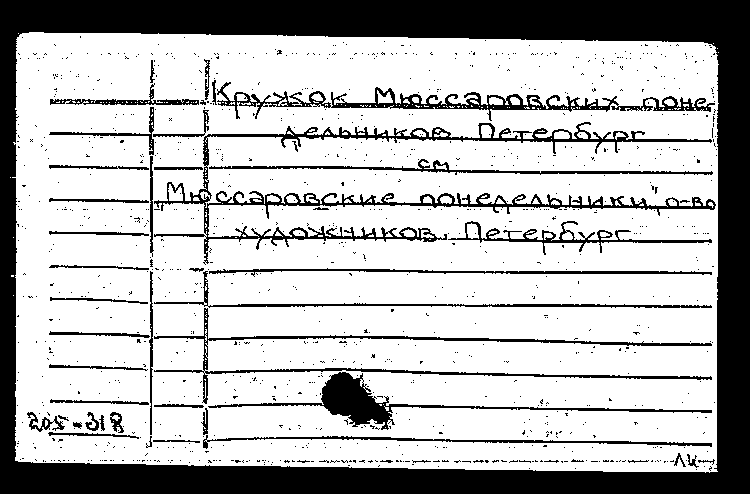 Кружок Мюссаровских поне-
дельников. Петербург
см.
"Мюссаровские понедельники", о-во
художников. Петербург
205-318
ЛК